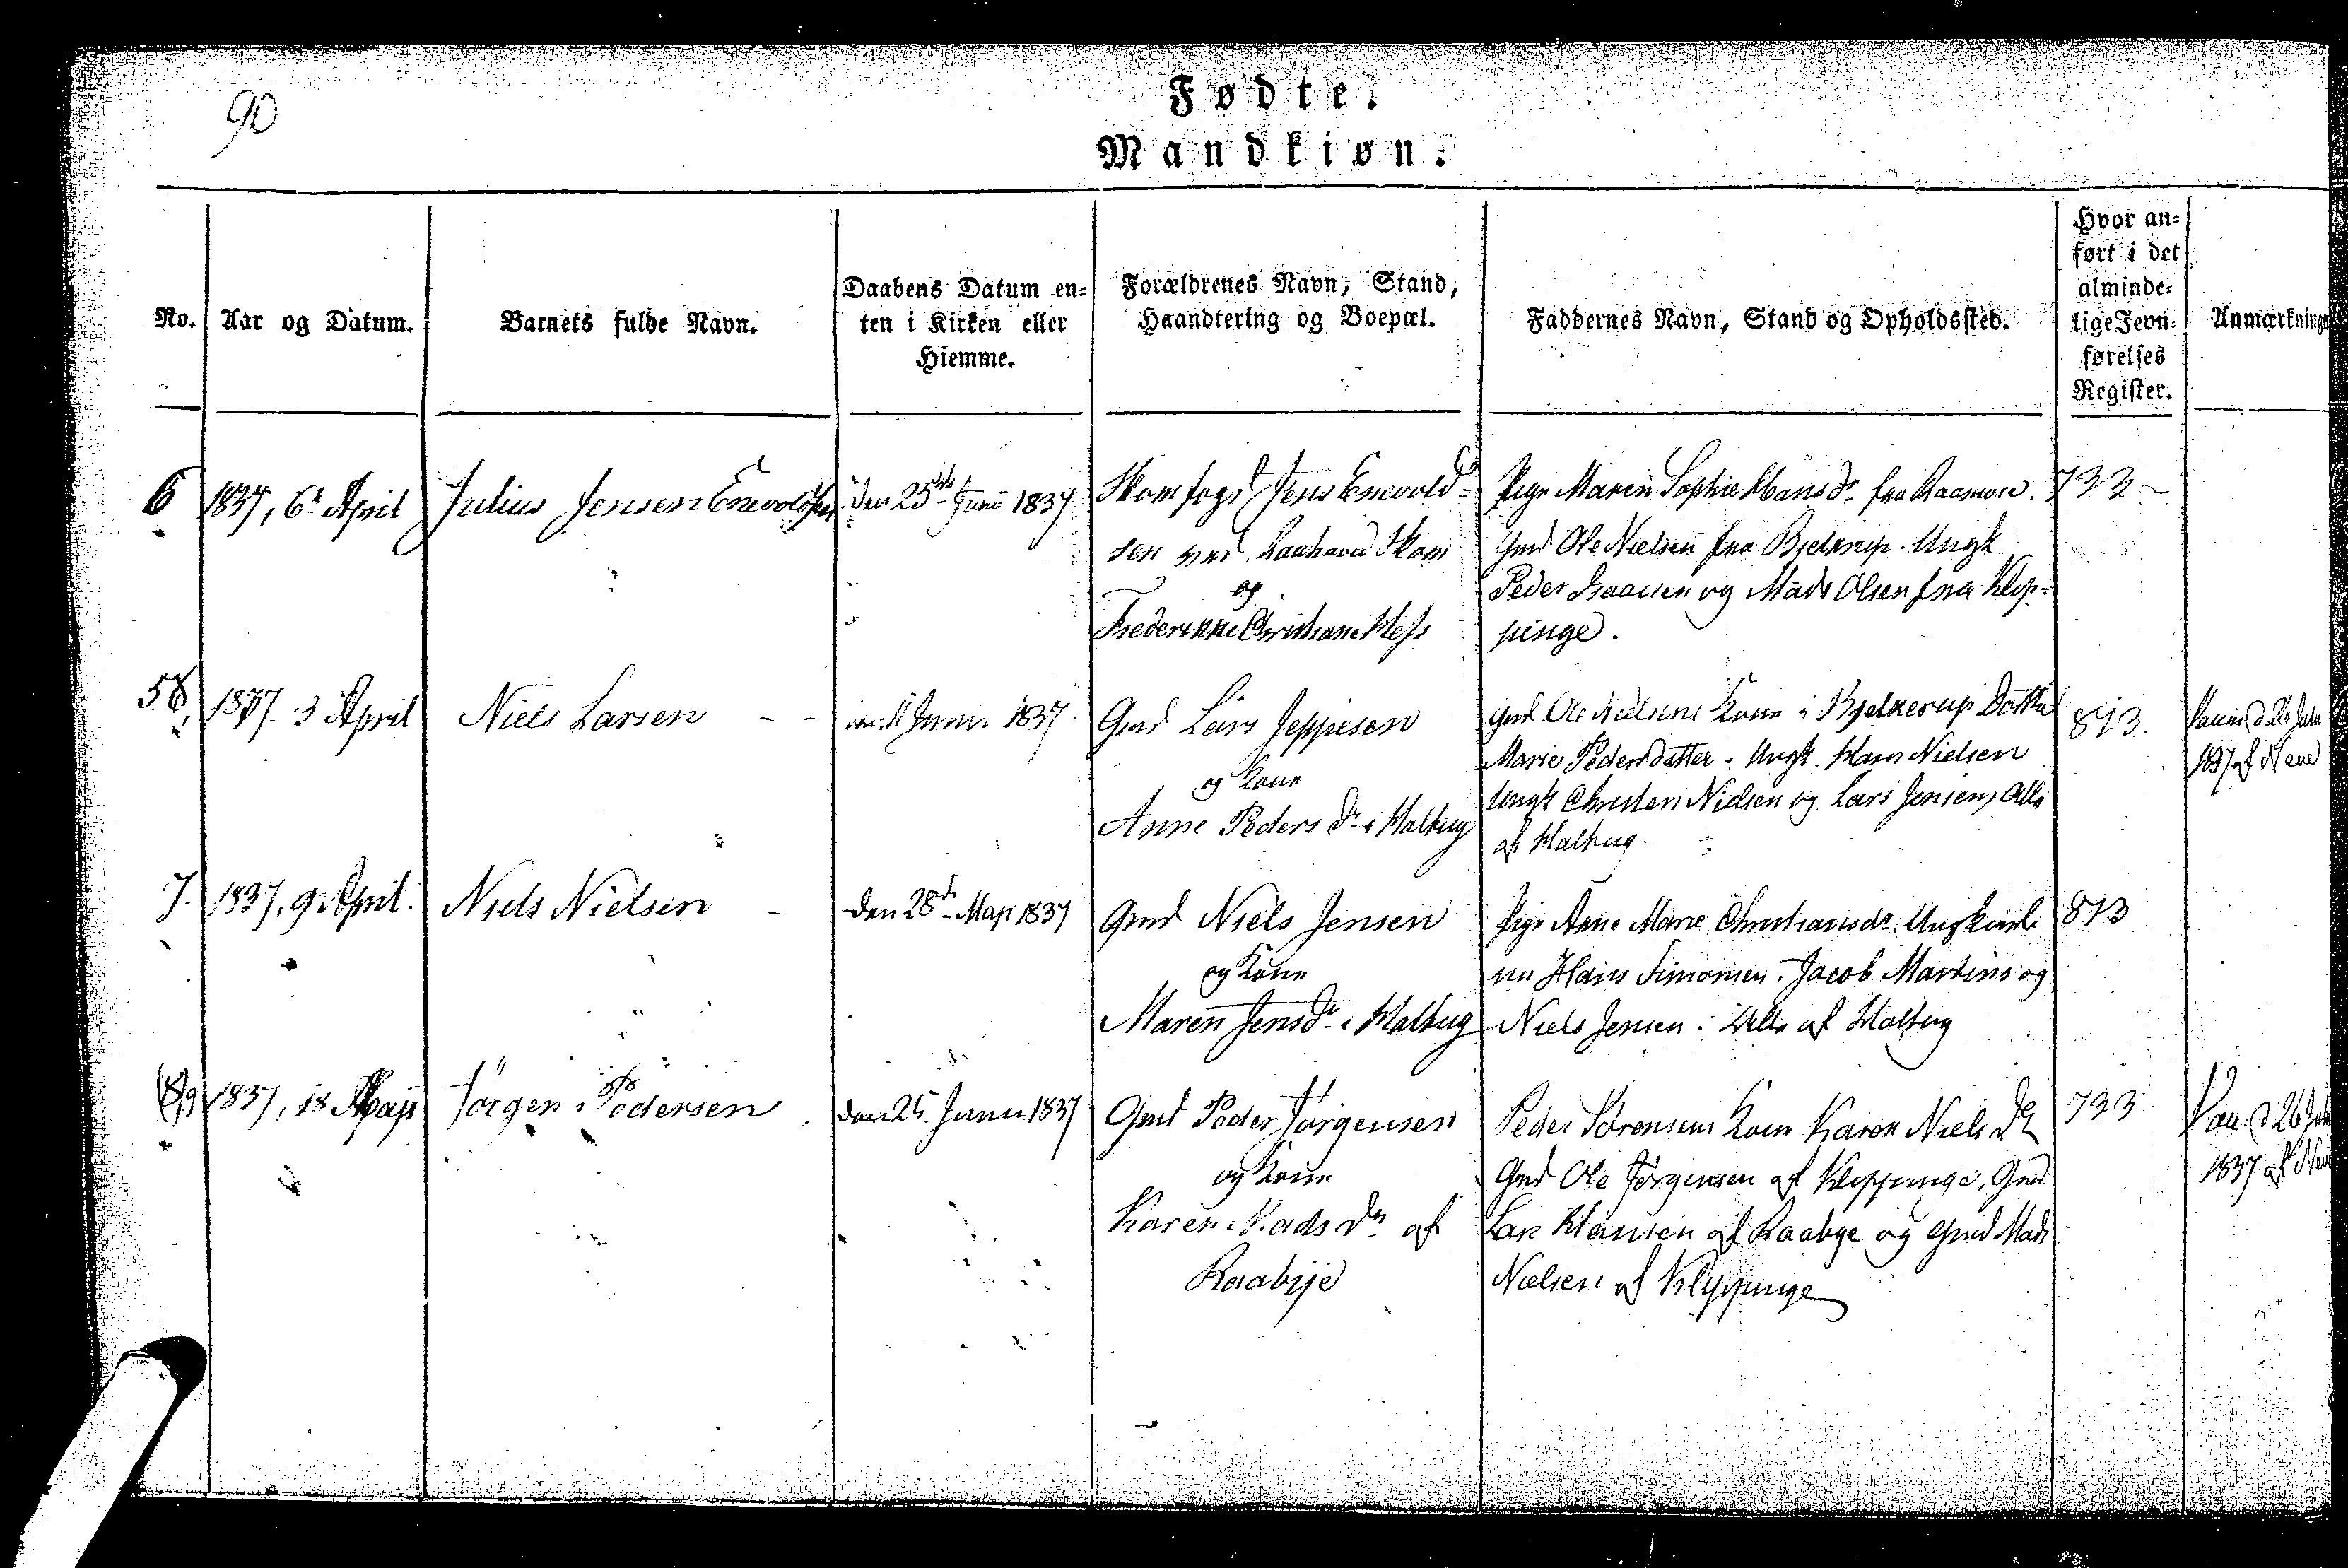 90
Fødte.
Mandkiøn.
No.
Aar og Datum.
Barnets fulde Navn.
Daabens Datum en-
ten i Kirken eller
Hiemme.
Forældrenes Navn, Stand,
Haandtering og Boepæl.
Faddernes Navn, Stand og Opholdssted.
Hvor an-
ført i det
alminde-
lige Jevn-
førelses
Register.
Anmærkninge
6
1837, 6te April
Julius Jensen Enevoldsen
den 25de Junii 1837
Jens Enevold-
sen ved Skov
og
Frederikke Christiane
Pige Maren Sophie Hans dr fra
Gmd Ole Nielsen fra Bjelkerup. Ungk
Peder Isaacsen og Mads Olsen fra Klip-
pinge.
733
1837. 3 April
Niels Larsen
11 Junii 1837
Gmd Lars Jeppesen
og Kone
Anne Peders dr i
Gmd Ole Nielsens Kone i Bjelkerup
Marie Pedersdatter. Ungk. Hans Nielsen
Ungk Christen Nielsen og Lars Jensen, Alle
af
873.
1837 af
7.
1837, 9 April.
Niels Nielsen
den 28de Maji 1837
Gmd Niels Jensen
og Kone
Maren Jensdr i
Pige Anne Marie Christiansdr. Ungkarle
ne Hans Simonsen. Jacob Martins og
Niels Jensen. Alle af
873
1837, 18 Maji
Jörgen Pedersen
den 25 Junii 1837
Gmd Peder Jörgensen
og Kone
Karen Mads dr af
Raabÿe
Peder Sørensens Kone Karen Niels dr
Gmd Ole Jørgensen af Klippinge, Gmd
Lars Hansen af Raabye og Gmd Mads
Nielsen af Klippinge
733
26
1837 af